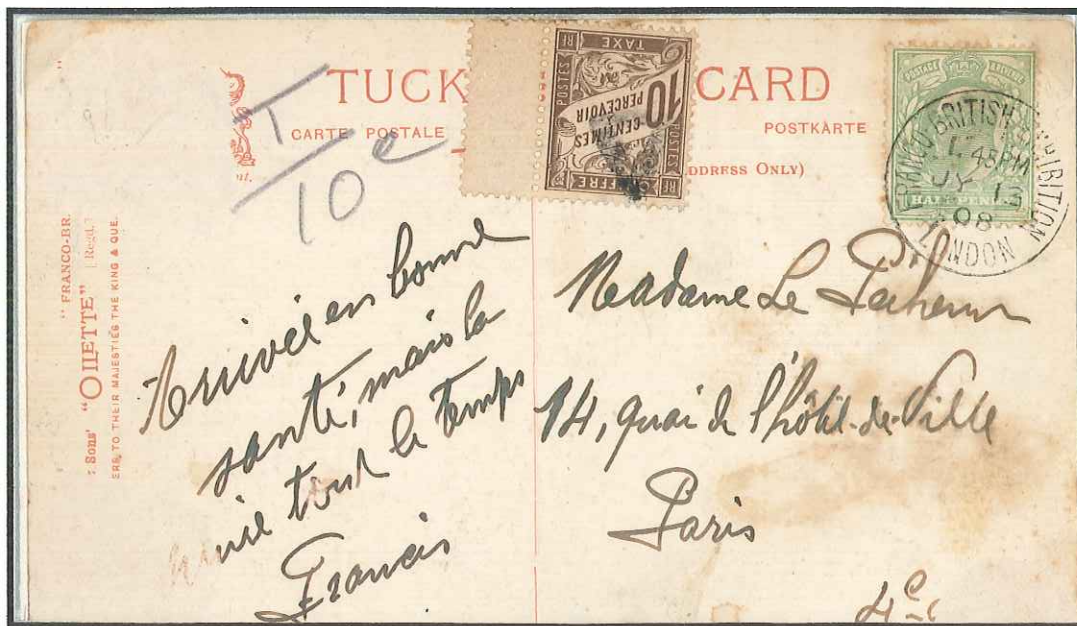 TUCK CARD
CARTE POSTALE
POSTKARTE
DDRESS ONLY)
T
10c
POSTES
RF
TAXE
10
CENTIMES
À
PERCEVOIR
CHIFFRE
POSTES
RF
POSTAGE REVENUE
HALFPENNY
FRANCO-BRITISH EXHIBITION
1.45PM
JY 13
08
LONDON
"FRANCO-BR.
Sons' "OILETTE" [Regd.]
ERS TO THEIR MAJESTIES THE KING & QUE.
Arrivée en bonne
santé, mais la
tout le temps
Francis
Madame Le
14, quai de l'hôtel-de-Ville
Paris
4e